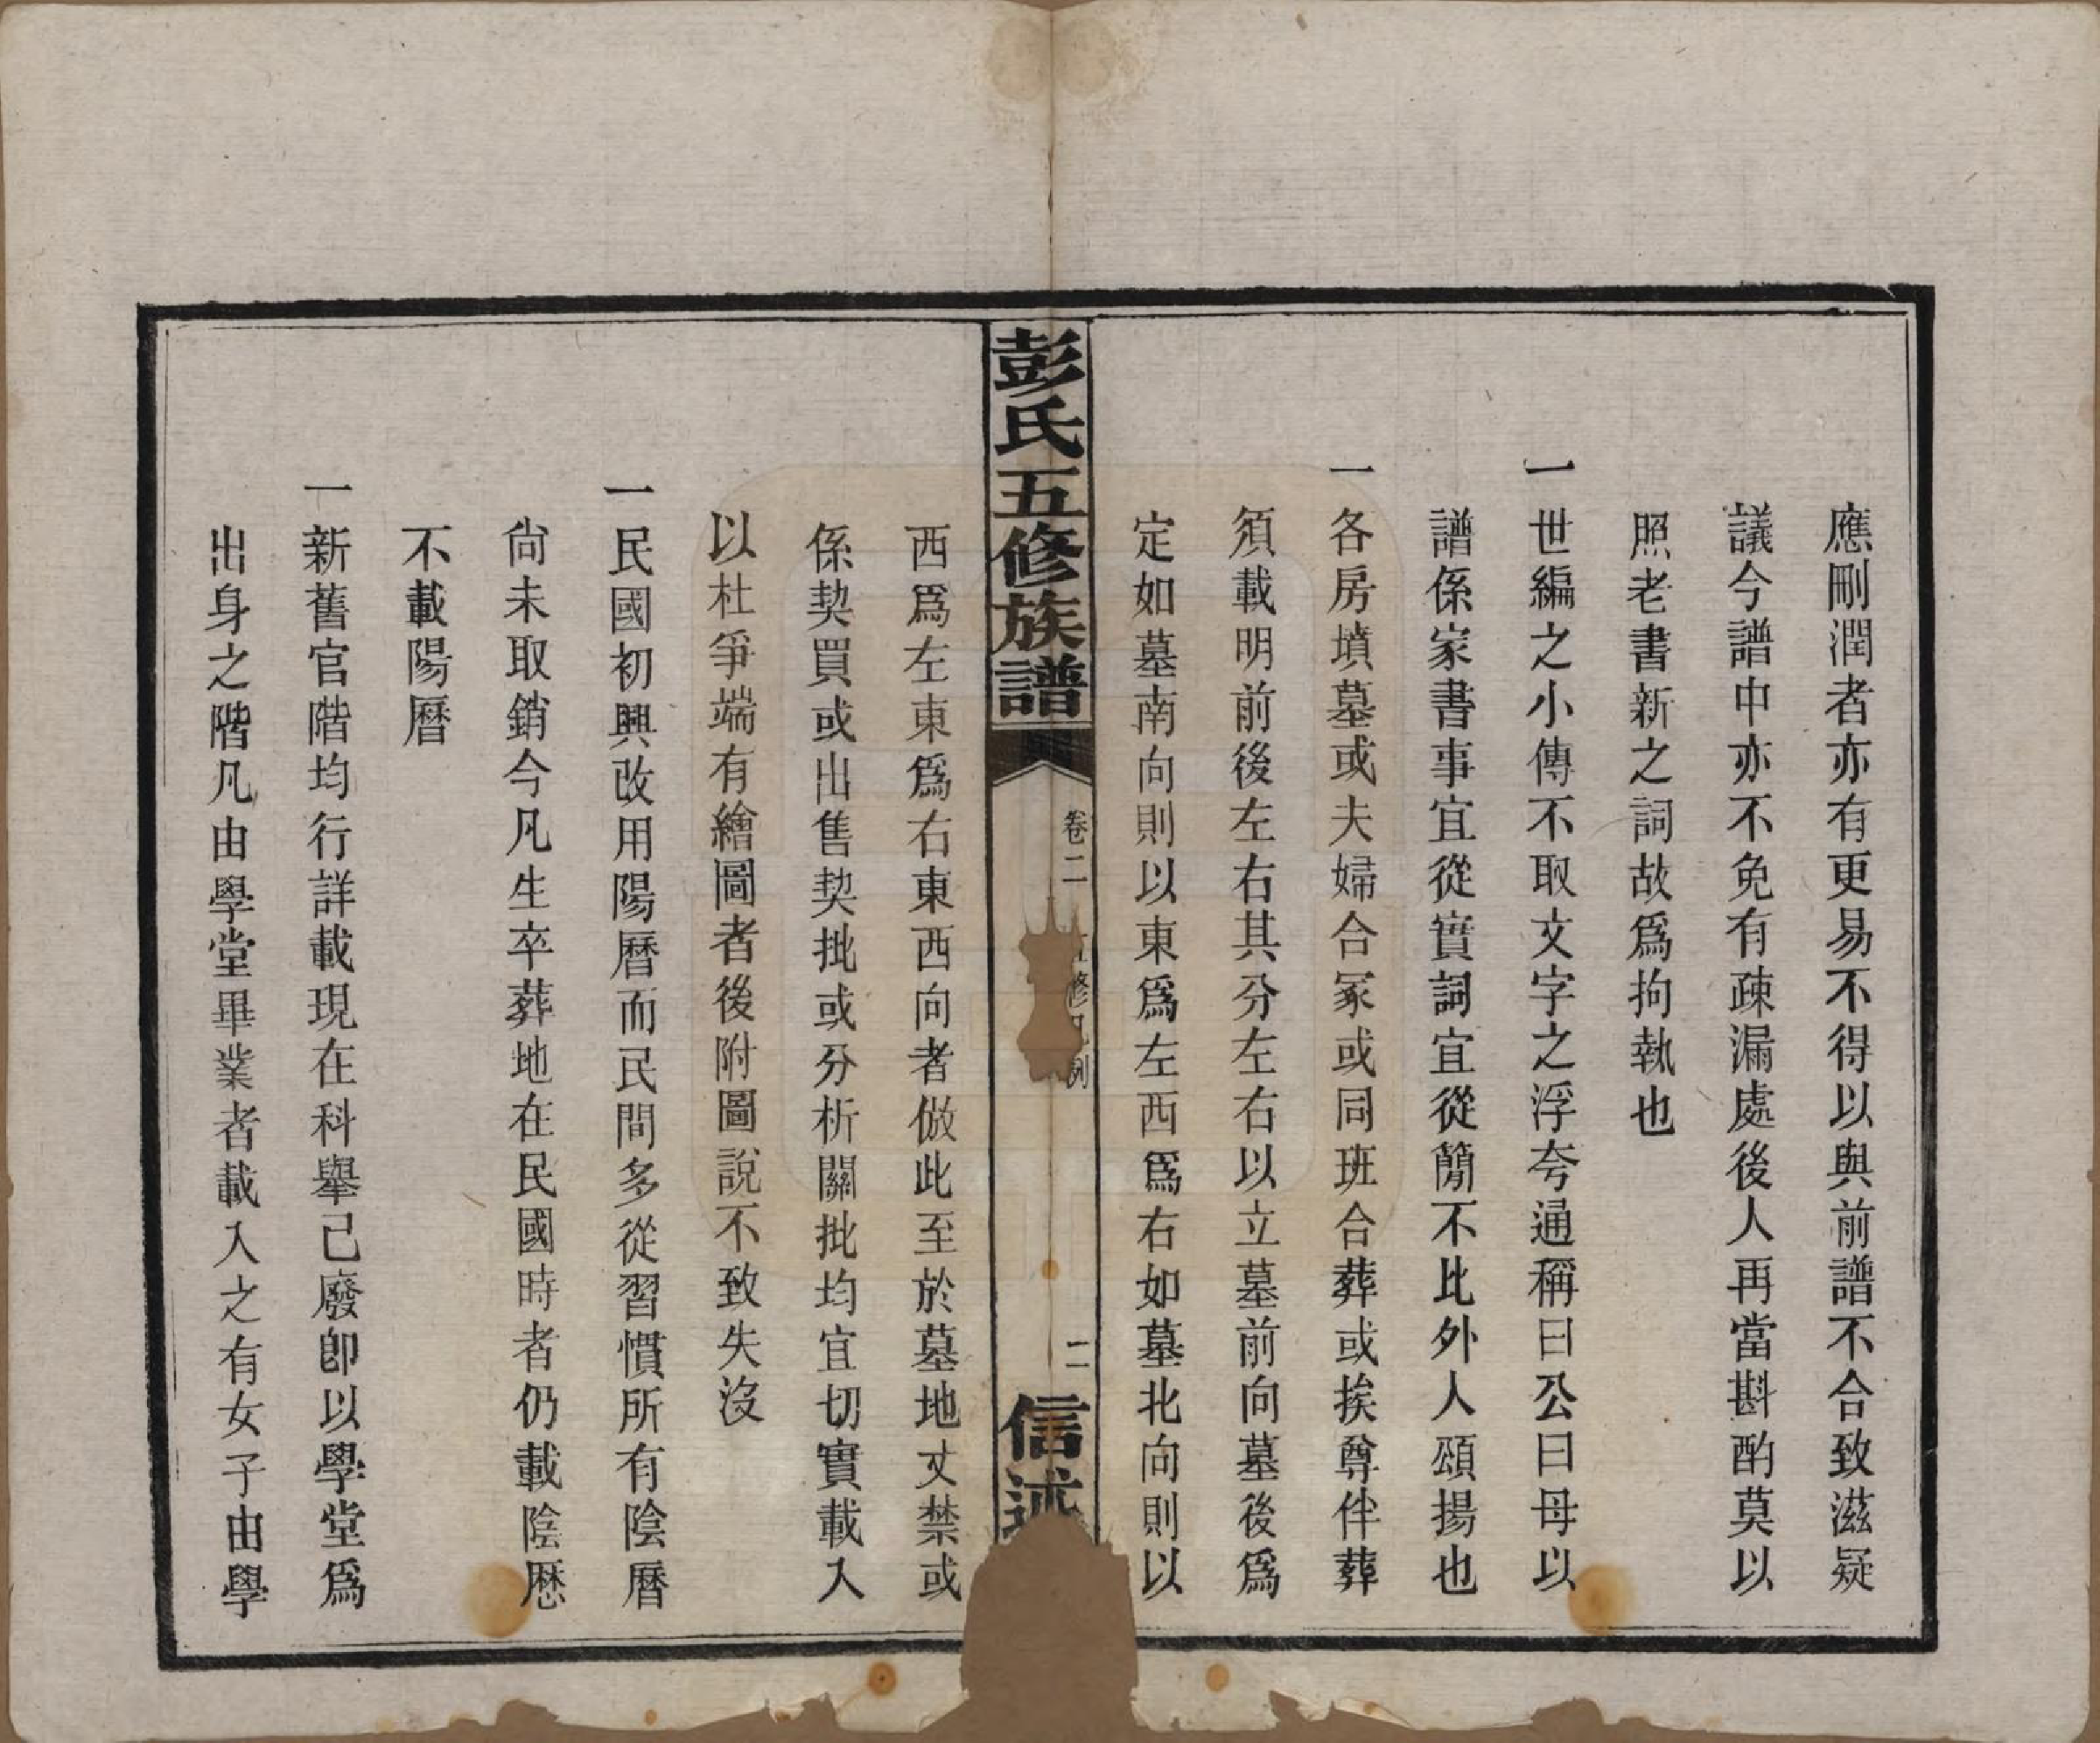 應刪潤者亦有更易不得以與前譜不合致滋疑
議今譜中亦不免有疎漏處後人再當斟酌莫以
照老書新之詞故爲拘執也
一世編之小傳不取文字之浮夸通稱曰公曰母以
譜係家書事宜從實詞宜從簡不比外人頌揚也
一各房墳墓或夫婦合冢或同班合葬或挨尊伴葬
須載明前後左右其分左右以立墓前向墓後爲
定如墓南向則以東爲左西爲右如墓北向則以
彭氏五修族譜
卷二
修凡例
二
信述
西爲左東爲右東西向者倣此至於墓地丈禁或
係契買或出售契批或分析關批均宜切實載入
以杜爭端有繪圖者後附圖說不致失沒
一民國初興改用陽曆而民間多從習慣所有陰曆
尙未取銷今凡生卒葬地在民國時者仍載陰歷
不載陽曆
一新舊官階均行詳載現在科舉已廢卽以學堂爲
出身之階凡由學堂畢業者載入之有女子由學